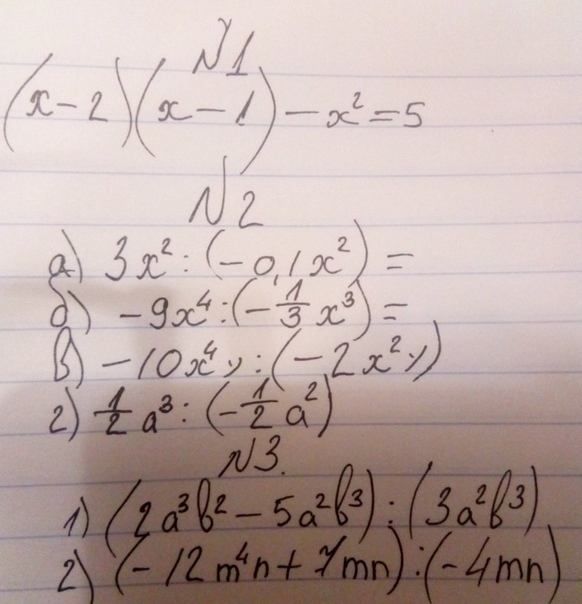 N1
(x-2)(x-1)-x²=5
N2
а) 3x²:(-0,1x²)=
б) -9x⁴:(-1/3 x³)=
в) -10x⁴y:(-2x²y)
г) 1/2 a³:(-1/2 a²)
N3.
1) (2a³b²-5a²b³):(3a²b³)
2) (-12m⁴n+7mn):(-4mn)